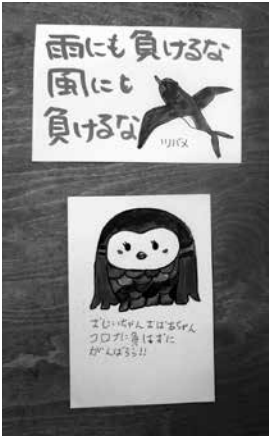 雨にも負けるな
風にも
負けるな
ツバメ
おじいちゃんおばあちゃん
コロナに負けずに
がんばろう!!